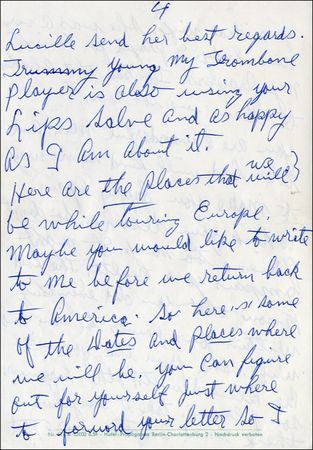 4
Lucille send her best regards.
Trummy young my Trombone
Player is also using your
Lips Salve and as happy
As I Am about it.
Here are the Places that we will
be while touring Europe.
Maybe you would like to write
to me before we return back
to America. So here is some
of the Dates and places where
we will be. you Can figure
out for yourself Just where
to forword your letter So I
Berlin-Charlottenburg 2 · Nachdruck verboten